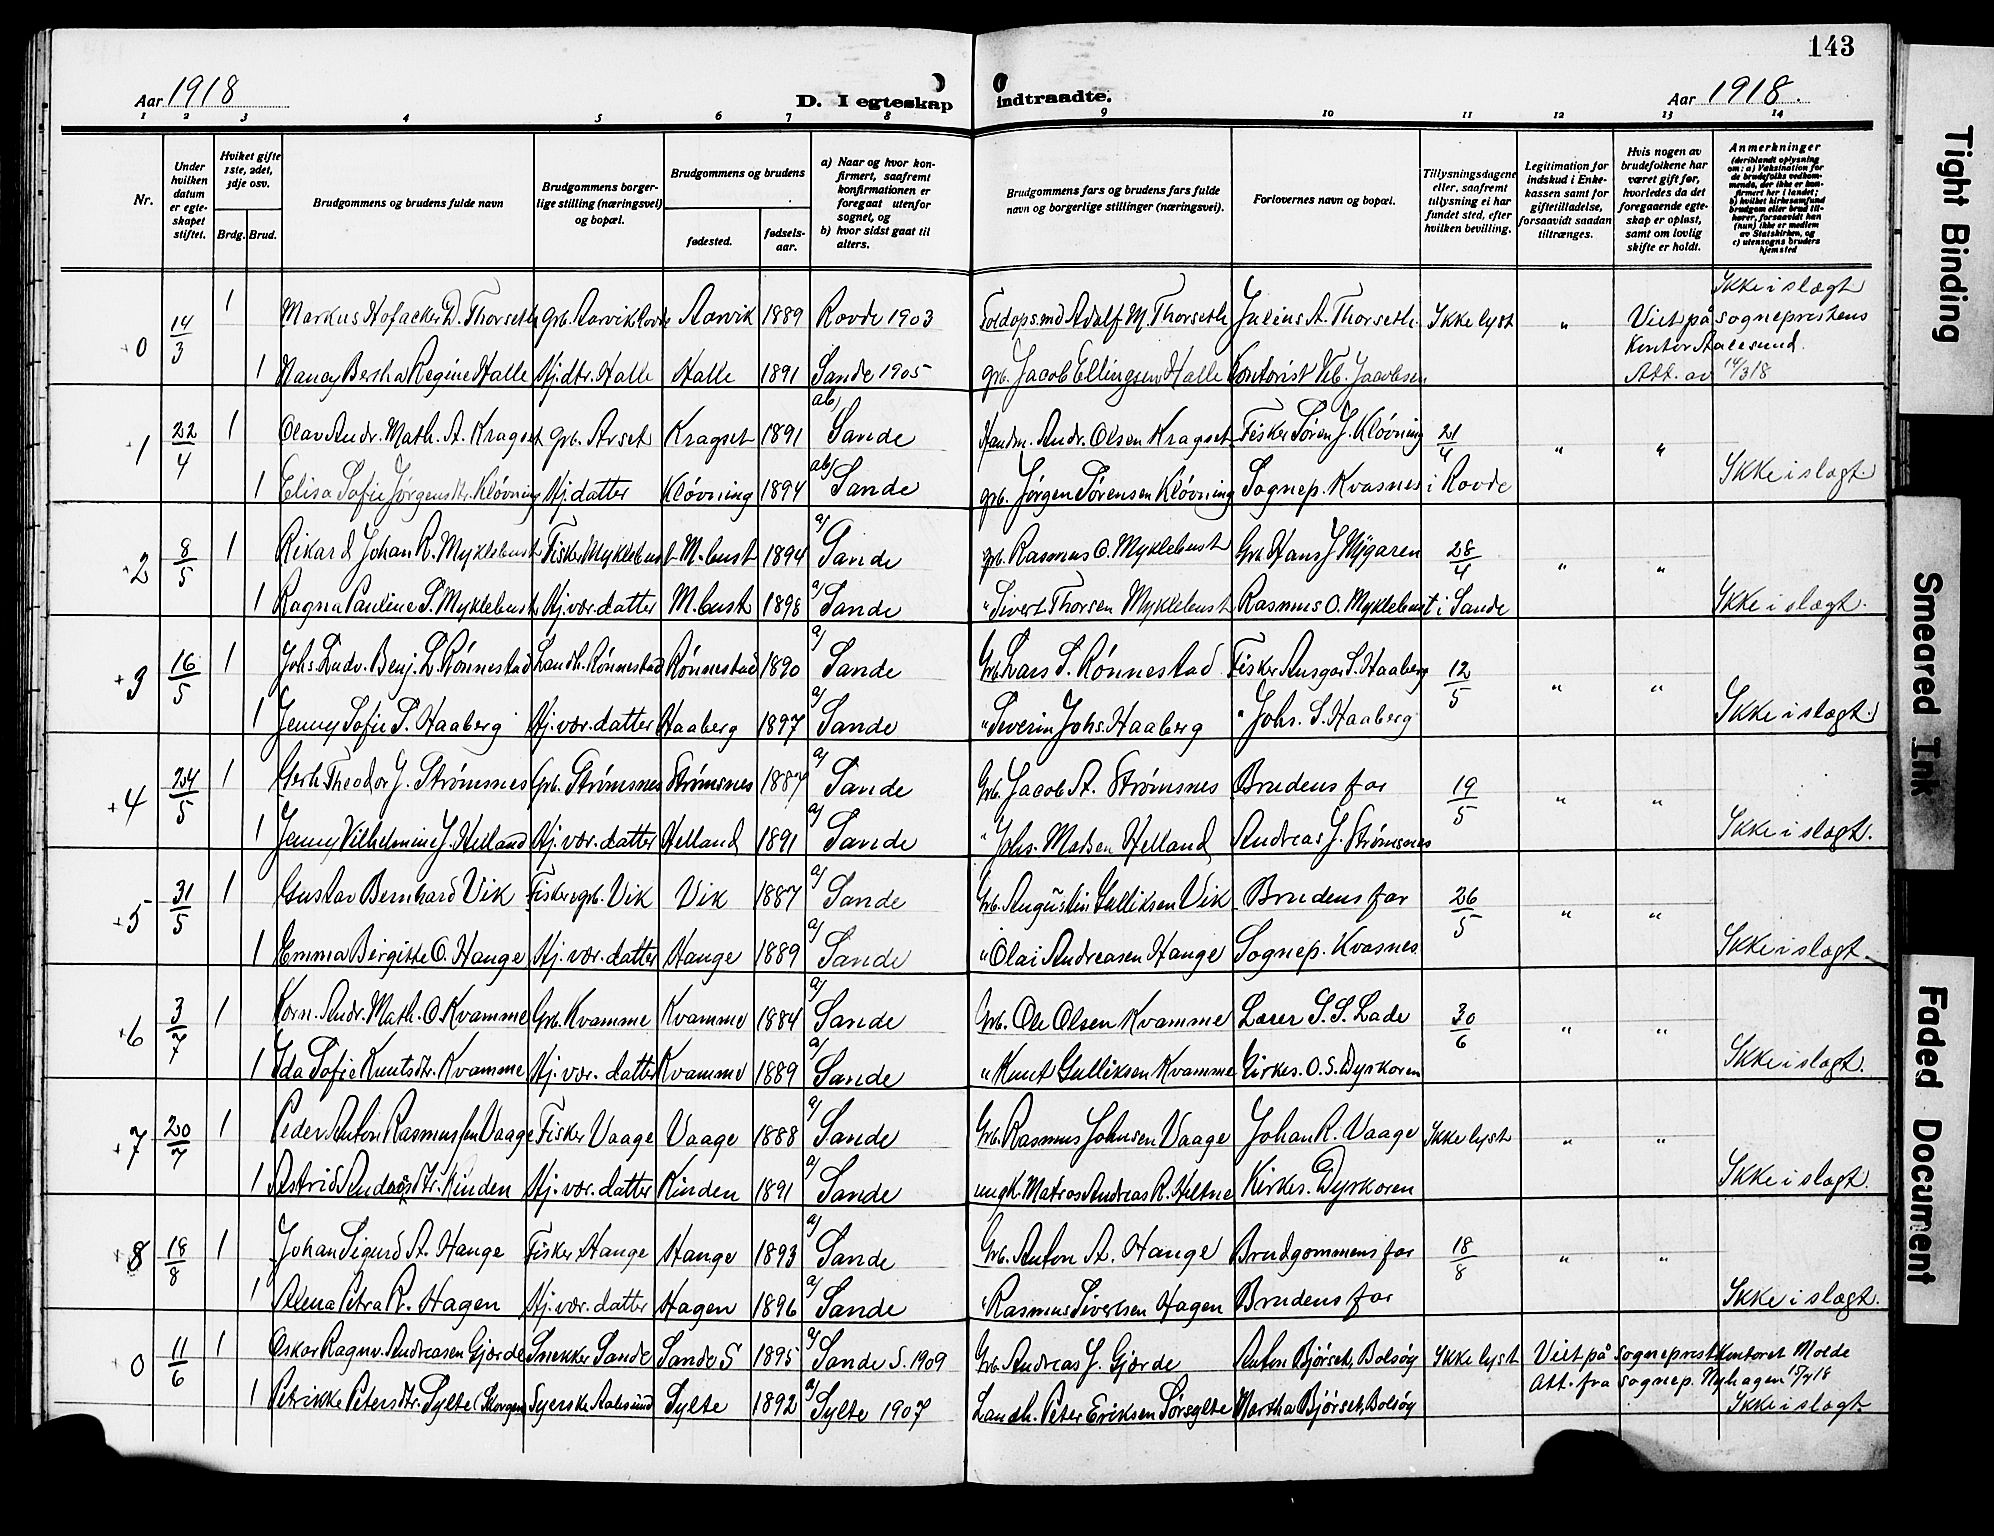 143
Aar 1918
D. I egteskap indtraadte.
Aar 1918.
1 2 3 4 5 6 7 8 9 10 11 12 13 14
Nr.
Under hvilken datum er egteskapet stiftet.
Hviket gifte 1ste, 2det, 3dje osv.
Brdg. Brud.
Brudgommens og brudens fulde navn
Brudgommens borgerlige stilling (næringsvei) og bopæl.
Brudgommens og brudens
fødested.
fødselsaar.
a) Naar og hvor konfirmert, saafremt konfirmationen er foregaat utenfor sognet, og
b) hvor sidst gaat til alters.
Brudgommens fars og brudens fars fulde navn og borgerlige stillinger (næringsvei).
Forlovernes navn og bopæl.
Tillysningsdagene eller, saafremt tillysning ei har fundet sted, efter hvilken bevilling.
Legitimation for indskud i Enkekassen samt for giftetilladelse, forsaavidt saadan tiltrænges.
Hvis nogen av brudefolkene har været gift før, hvorledes da det foregaaende egteskap er opløst, samt om lovlig skifte er holdt.
Anmerkninger (deriblandt oplysning om: a) Vaksination for de brudefolks vedkommende, der ikke er konfirmert her i landet; b) hvilket kirkesamfund brudgom eller brud tilhører, forsaavidt han (hun) ikke er medlem av Statskirken, og c) utensogns bruders hjemsted
0 14/3 1 Markus Hofacker D. Thorseth Grb. Aarvik Rovde Aarvik 1889 Rovde 1903 Toldops.md Adolf M. Thorseth Julius A. Thorseth. Ikke lyst " Viet på sogneprestens Kontor Aalesund. Ikke i slægt
1 Nancy Bertha Regine Halle Hj.dtr. Halle Halle 1891 Sande 1905 Grb. Jacob Ellingsen Halle Kontorist Vib. Jacobsen Att. av 14/3 18
1 22/4 1 Olav Andr. Math. A. Kragset Grb. Årset Kragset 1891 ab) Sande Handm. Andr. Olsen Kragset Fisker Søren J. Kløvning 21/4 " "
1 Elisa Sofie Jørgensdtr. Kløvning Hj. datter Kløvning 1894 ab) Sande Grb. Jørgen Sørensen Kløvning Sognep. Kvasnes i Rovde Ikke i slægt.
2 8/5 1 Rikard Johan R. Myklebust Fisker Myklebust M.bust 1894 a) Sande Grb. Rasmus O. Myklebust Grb. Hans J Mýgaren 28/4 " "
1 Ragna Pauline S. Myklebust Hj. vær. datter M.bust 1898 a) Sande " Sivert Thorsen Myklebust Rasmus O. Myklebust i Sande Ikke i slægt.
3 16/5 1 Johs. Ludv. Benj. L. Rønnestad Landh. Rønnestad Rønnestad 1890 a) Sande Grb. Lars S. Rønnestad Fisker Ansgar S. Haaberg 12/5 " "
1 Jenny Sofie S. Haaberg Hj. vær. datter Haaberg 1897 a) Sande " Severin Johs. Haaberg " Johs. S. Haaberg Ikke i slægt.
4 24/5 1 Gerh. Theodor J. Strømsnes Grb. Strømsnes Strømsnes 1887 a) Sande Grb. Jacob A. Strømsnes Brudens far 19/5 " "
1 Jenny Vilhelmine J. Helland Hj. vær. datter Helland 1891 a) Sande " Johs. Madsen Helland Andreas J. Strømsnes Ikke i slægt.
5 31/5 1 Gustav Bernhard Vik Fisker og grb. Vik Vik 1887 a) Sande Grb. Augustin Gulliksen Vik Brudens far 26/5 " "
1 Emma Birgitte O. Hauge Hj. vær. datter Hauge 1889 a) Sande " Olai Andreasen Hauge Sognep. Kvasnes. Ikke i slægt.
6 3/7 1 Korn. Andr. Math. O. Kvamme Grb. Kvamme Kvamme 1884 a) Sande Grb. Ole Olsen Kvamme Lærer S. S. Lade 30/6 " "
1 Ida Sofie Knutsdtr. Kvamme Hj. vær. datter Kvamme 1889 a) Sande " Knut Gulliksen Kvamme Kirkes. O. S. Dyrkoren Ikke i slægt.
7 20/7 1 Peder Anton Rasmussen Vaage Fisker Vaage Vaage 1888 a) Sande Grb. Rasmus Johnsen Vaage Johan R. Vaage Ikke lyst " "
1 Astrid Andreasdtr. Kinden Hj. vær. datter Kinden 1891 a) Sande ungk. Matros Andreas R. Hiltne Kirkes. Dyrkoren Ikke i slægt.
8 18/8 1 Johan Sigurd A. Hauge Fisker Hauge Hauge 1893 a) Sande Grb. Anton A. Hauge Brudgommens far 18/8 " "
1 Alma Petra R. Hagen Hj. vær. datter Hagen 1896 a) Sande " Rasmus Sivertsen Hagen Brudens far Ikke i slægt.
0 11/6 1 Oskar Ragnv. Andreasen Gjørde Snekker Sande Sande S 1895 a) Sande S. 1909 Grb. Andreas J. Gjørde Anton Bjørset, Bolsøy Ikke lyst Viet på sogneprestkontoret Molde
1 Petrikke Petersdtr. Sylte (Skorgen) Syerske Aalesund Sylte 1892 a) Sylte 1907 Landh. Peter Eriksen Sørsylte Martha Bjørset, Bolsøy Att. fra sognep. Nyhagen Ikke i slægt.
Tight Binding
Smeared Ink
Faded Document